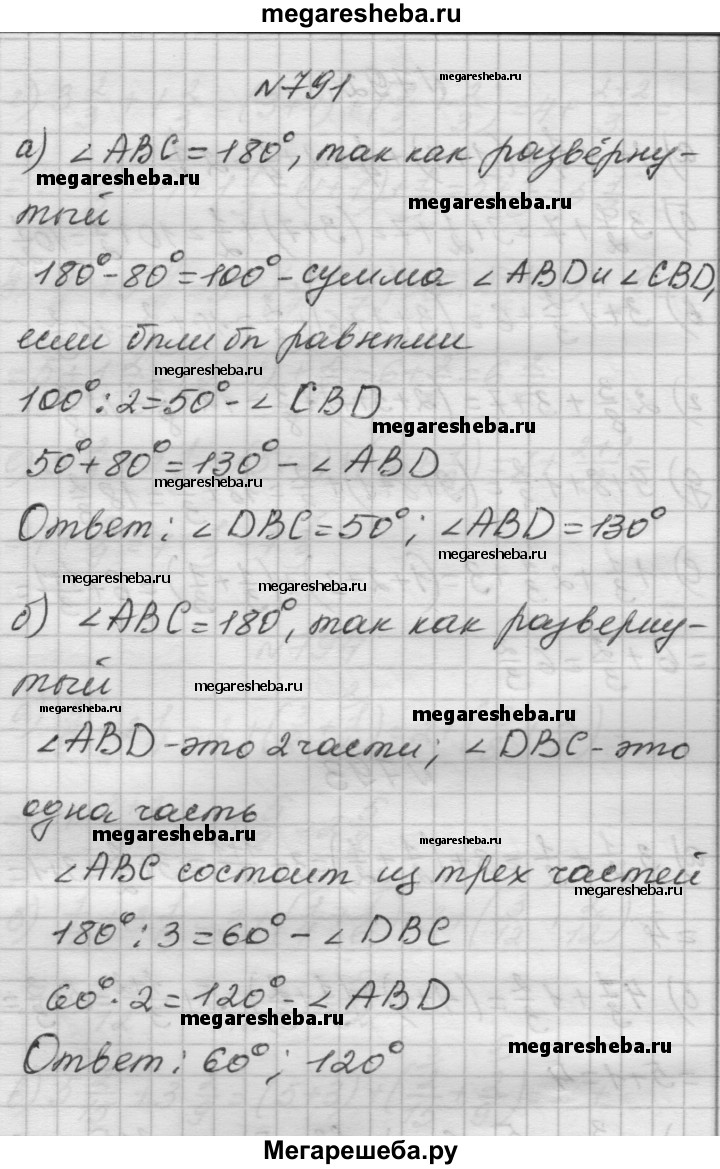 megaresheba.ru
№791 megaresheba.ru
а) ∠ABC=180°, так как развёрну-
megaresheba.ru
megaresheba.ru
тый
180°-80°=100°-сумма ∠ABD и ∠CBD,
если были бы равными
megaresheba.ru
100°:2=50°-∠CBD
megaresheba.ru
50°+80°=130°-∠ABD
megaresheba.ru
Ответ: ∠DBC=50°; ∠ABD=130°
megaresheba.ru
megaresheba.ru
megaresheba.ru
б) ∠ABC=180°, так как разверну-
тый megaresheba.ru
megaresheba.ru
megaresheba.ru
∠ABD-это 2 части; ∠DBC-это
одна часть
megaresheba.ru
megaresheba.ru
∠ABC состоит из трех частей
megaresheba.ru
180°:3=60°-∠DBC
60°·2=120°-∠ABD
megaresheba.ru
Ответ: 60°; 120°
megaresheba.ru
Мегарешеба.ру